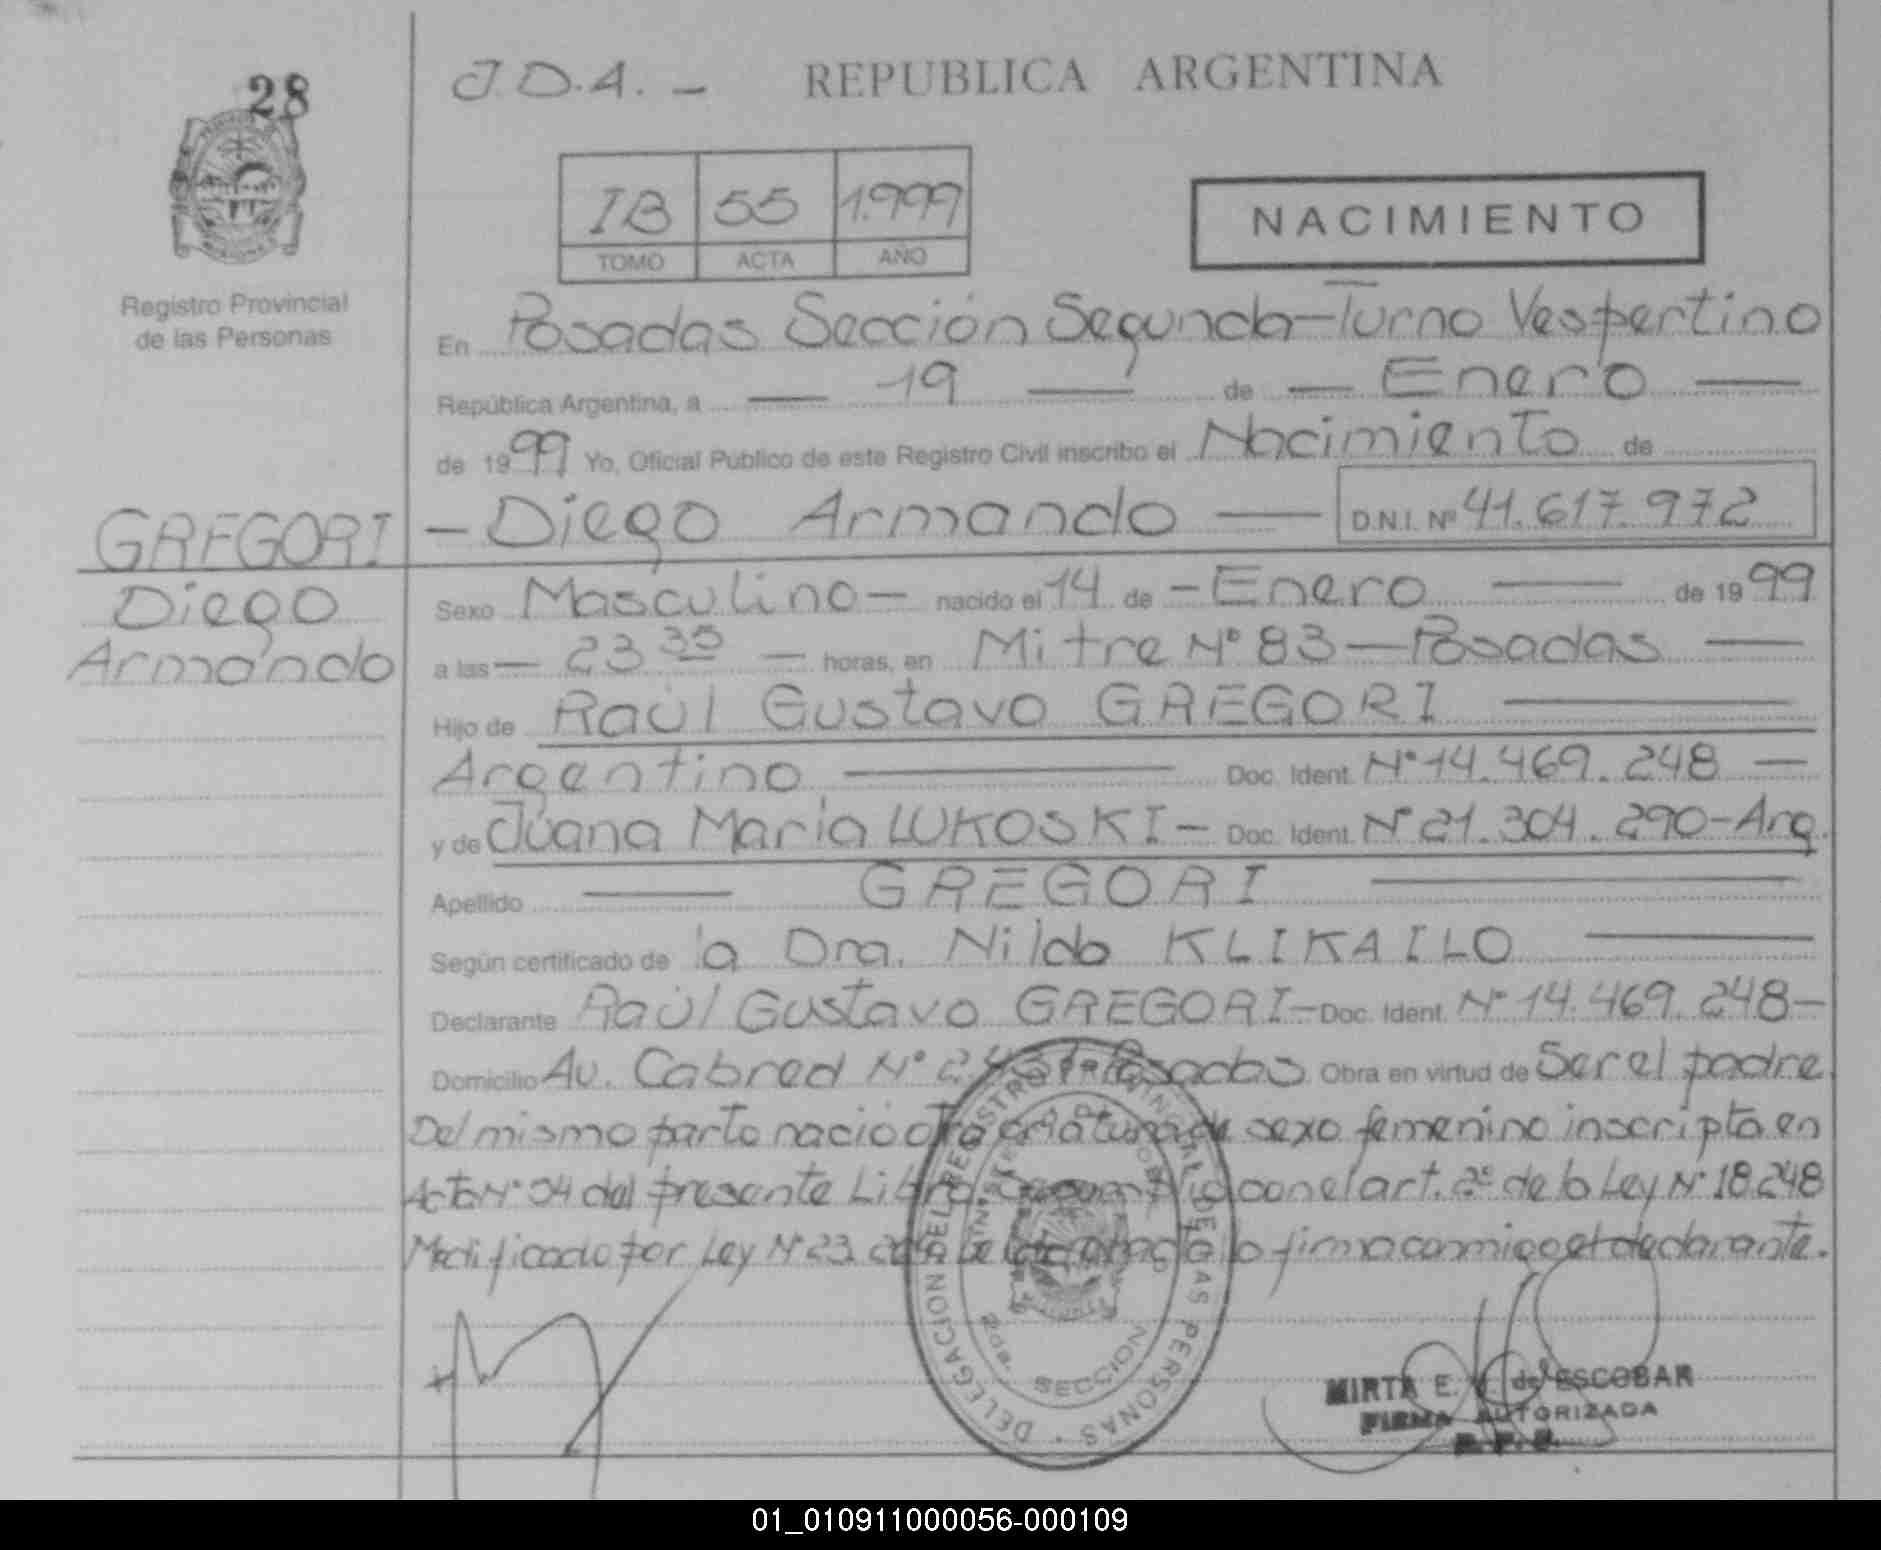 28
J.D.A. - REPUBLICA ARGENTINA
IB 55 1.999
TOMO ACTA AÑO
NACIMIENTO
Registro Provincial
de las Personas
En Posadas Sección Segunda-Turno Vespertino
República Argentina, a — 19 — de — Enero —
de 1999 Yo, Oficial Público de este Registro Civil inscribo el Nacimiento de
GREGORI - Diego Armando — D.N.I. Nº 41.617.972
Diego
Armando
Sexo Masculino - nacido el 14 de - Enero — de 1999
a las — 23 35 — horas, en Mitre Nº 83 — Posadas —
Hijo de Raúl Gustavo GREGORI —
Argentino — Doc. Ident. Nº 14.469.248 —
y de Juana Maria LUKOSKI - Doc. Ident. Nº 21.304.290-Arg.
Apellido — GREGORI —
Según certificado de la Dra. Nilda KLIKAILO —
Declarante Raúl Gustavo GREGORI - Doc. Ident. Nº 14.469.248 -
Domicilio Av. Cabred Nº Posadas Obra en virtud de Ser el padre.
Del mismo parto nacio otra criatura de sexo femenino inscripta en
Acta Nº 54 del presente Libro. con el art. 2º de la Ley Nº 18.248
Modificado por Ley Nº 23. la firma conmigo el declarante.
DELEGACION DEL REGISTRO PROVINCIAL DE LAS PERSONAS
2da. SECCION
MIRTA E. de ESCOBAR
FIRMA AUTORIZADA
01_010911000056-000109